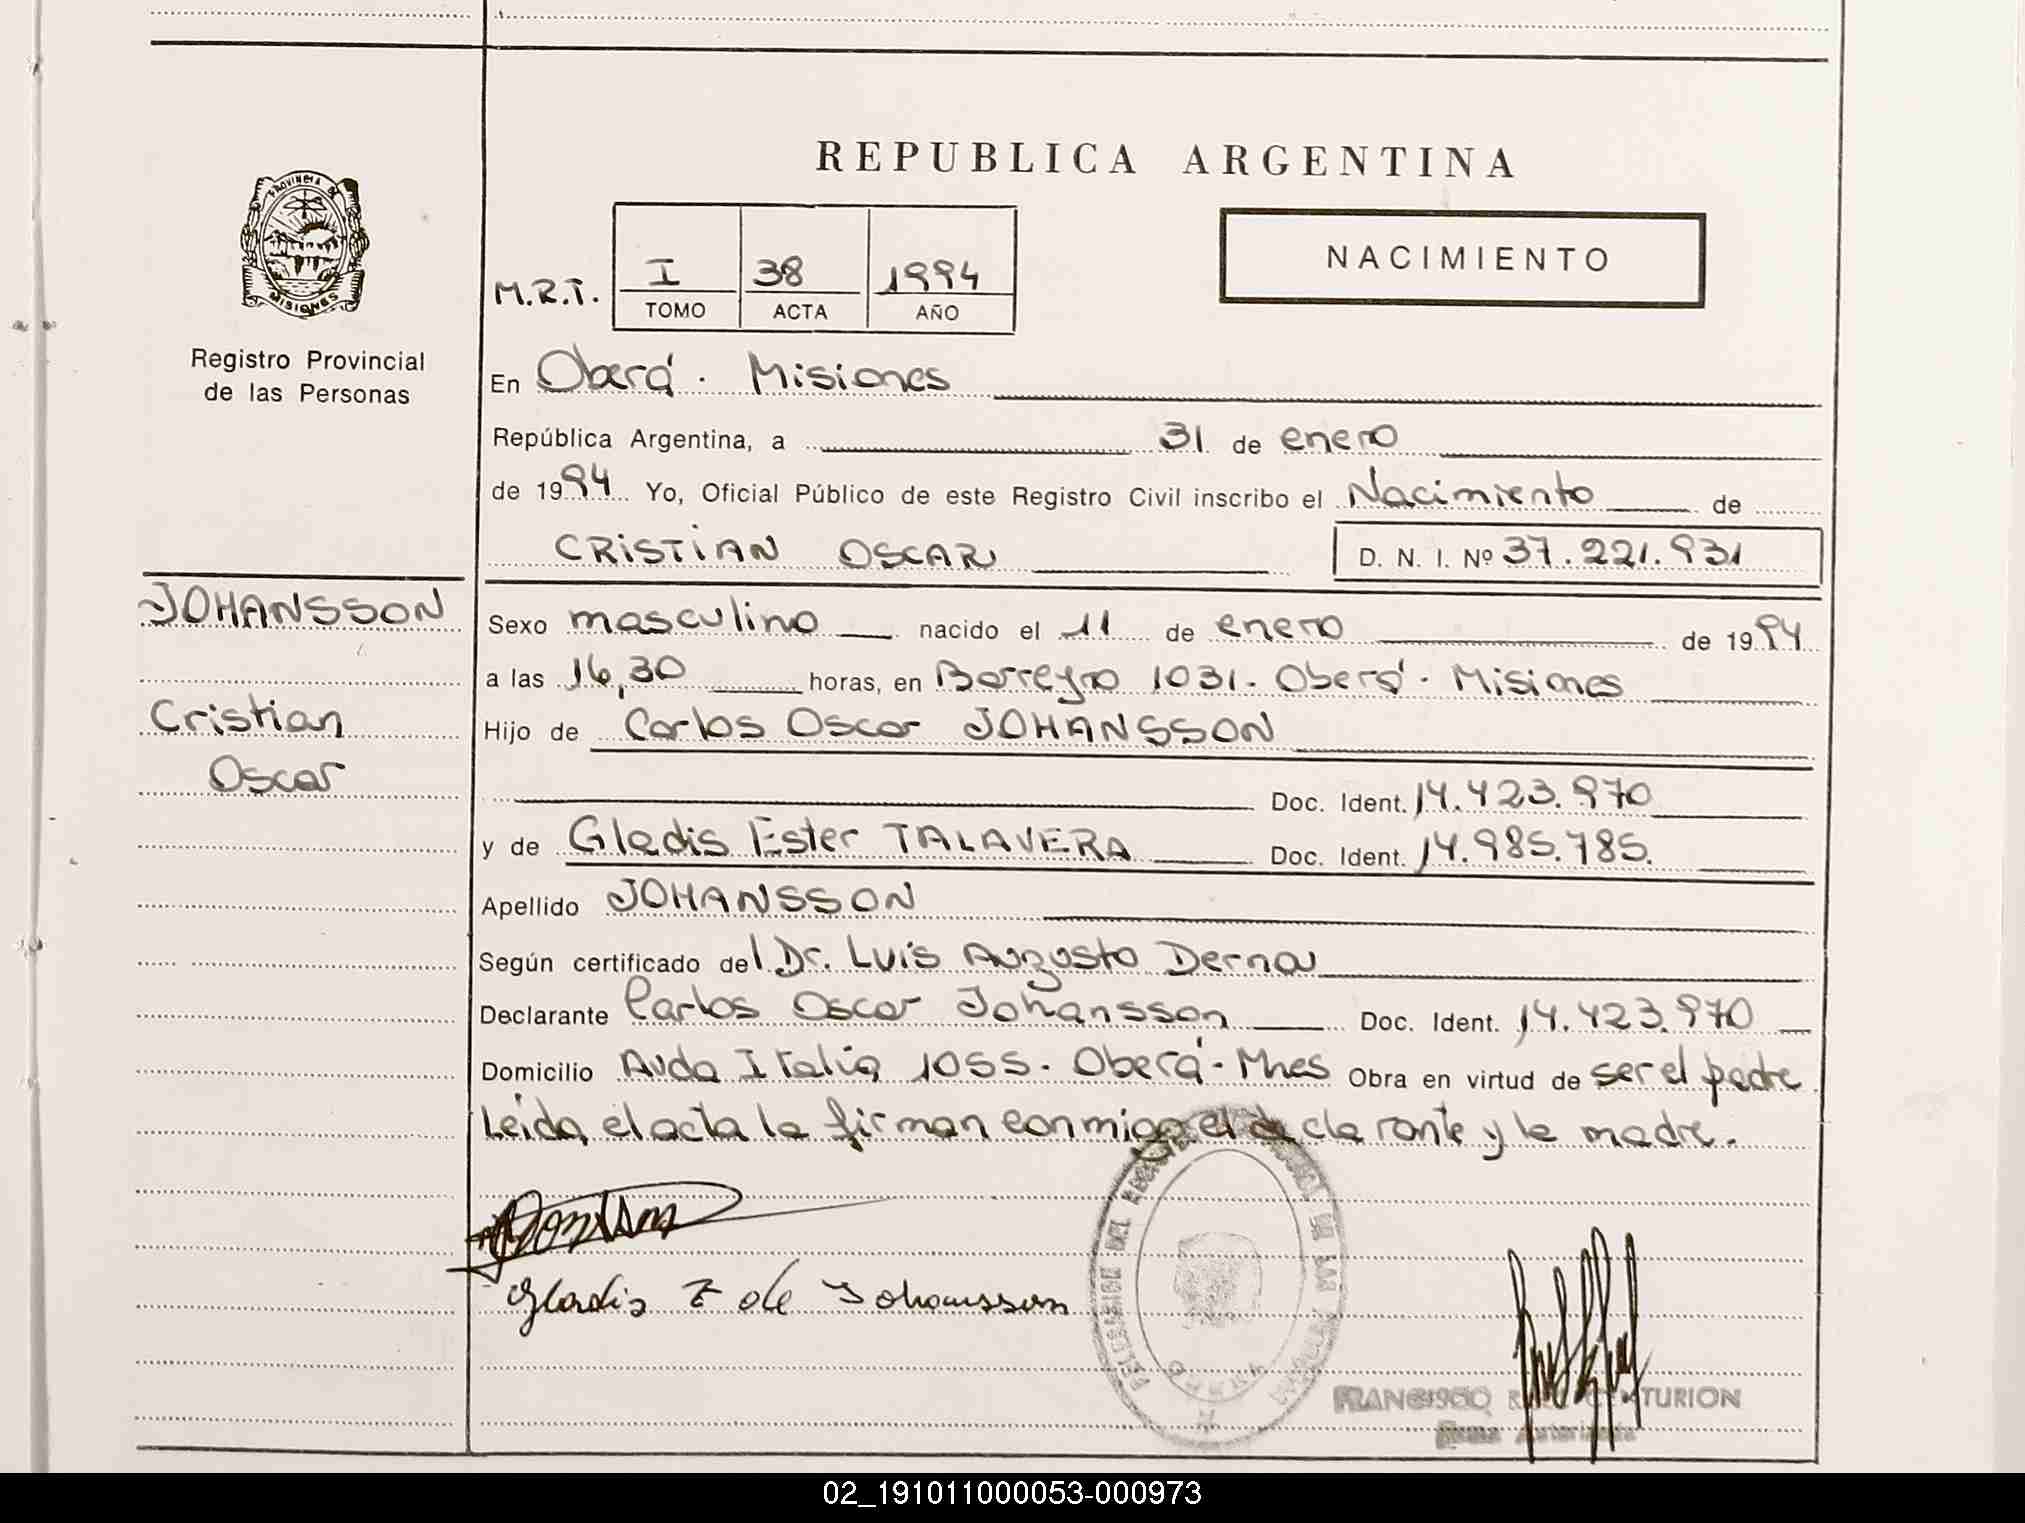 REPUBLICA ARGENTINA
PROVINCIA DE MISIONES
Registro Provincial
de las Personas
M.R.T.
I 38 1994
TOMO ACTA AÑO
NACIMIENTO
En Oberá. Misiones
República Argentina, a 31 de enero
de 1994 Yo, Oficial Público de este Registro Civil inscribo el Nacimiento de
CRISTIAN OSCAR D. N. I. Nº 37.221.931
JOHANSSON
Cristian
Oscar
Sexo masculino nacido el 11 de enero de 1994
a las 16,30 horas, en Barreyro 1031. Oberá. Misiones
Hijo de Carlos Oscar JOHANSSON
Doc. Ident. 14.423.970
y de Gladis Ester TALAVERA Doc. Ident. 14.985.785.
Apellido JOHANSSON
Según certificado del Dr. Luis Augusto Derna
Declarante Carlos Oscar Johansson Doc. Ident. 14.423.970
Domicilio Avda Italia 1055. Oberá. Mnes Obra en virtud de ser el padre
Leída el acta la firman conmigo el declarante y la madre.
Gladis T de Johansson
DELEGACION DEL DE LAS
OBERA
FRANCISCO CENTURION
Firma Autorizada
02_191011000053-000973